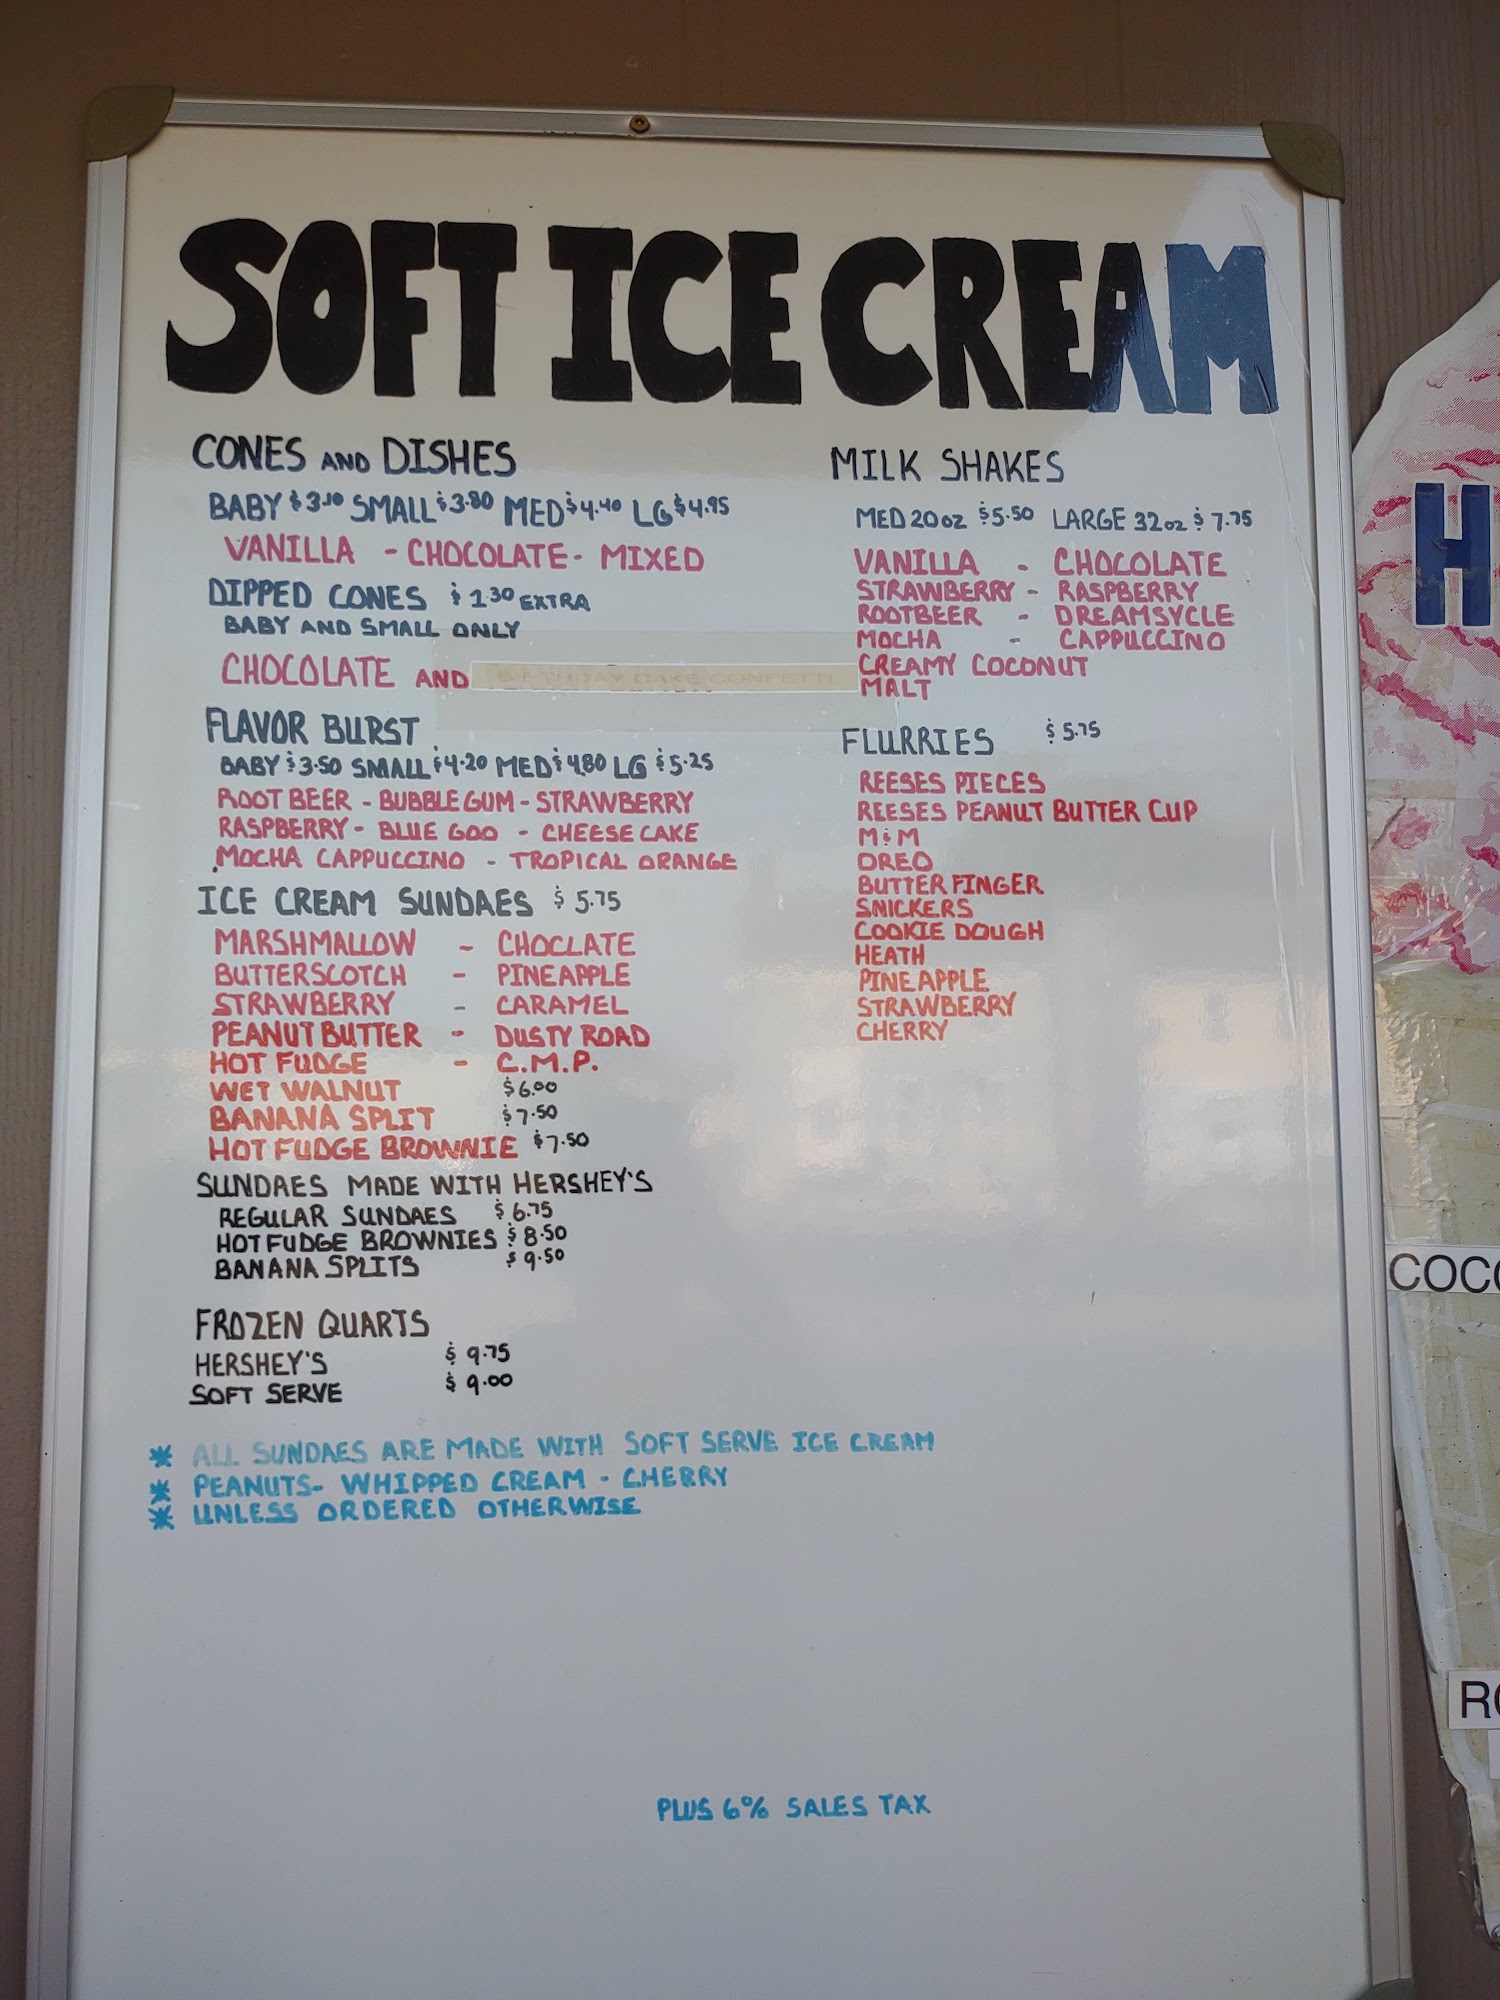 SOFT ICE CREAM
CONES AND DISHES
BABY $3.10 SMALL $3.80 MED $4.40 LG $4.95
VANILLA - CHOCOLATE - MIXED
DIPPED CONES $1.30 EXTRA
BABY AND SMALL ONLY
CHOCOLATE AND BIRTHDAY CAKE CONFETTI
FLAVOR BURST
BABY $3.50 SMALL $4.20 MED $4.80 LG $5.25
ROOT BEER - BUBBLE GUM - STRAWBERRY
RASPBERRY - BLUE GOO - CHEESE CAKE
MOCHA CAPPUCCINO - TROPICAL ORANGE
ICE CREAM SUNDAES $5.75
MARSHMALLOW - CHOCLATE
BUTTERSCOTCH - PINEAPPLE
STRAWBERRY - CARAMEL
PEANUT BUTTER - DUSTY ROAD
HOT FUDGE - C.M.P.
WET WALNUT $6.00
BANANA SPLIT $7.50
HOT FUDGE BROWNIE $7.50
SUNDAES MADE WITH HERSHEY'S
REGULAR SUNDAES $6.75
HOT FUDGE BROWNIES $8.50
BANANA SPLITS $9.50
FROZEN QUARTS
HERSHEY'S $9.75
SOFT SERVE $9.00
* ALL SUNDAES ARE MADE WITH SOFT SERVE ICE CREAM
* PEANUTS - WHIPPED CREAM - CHERRY
* UNLESS ORDERED OTHERWISE
MILK SHAKES
MED 20 OZ $5.50 LARGE 32 OZ $7.75
VANILLA - CHOCOLATE
STRAWBERRY - RASPBERRY
ROOTBEER - DREAMSYCLE
MOCHA - CAPPUCCINO
CREAMY COCONUT
MALT
FLURRIES $5.75
REESES PIECES
REESES PEANUT BUTTER CUP
M&M
OREO
BUTTER FINGER
SNICKERS
COOKIE DOUGH
HEATH
PINEAPPLE
STRAWBERRY
CHERRY
PLUS 6% SALES TAX
H
COC